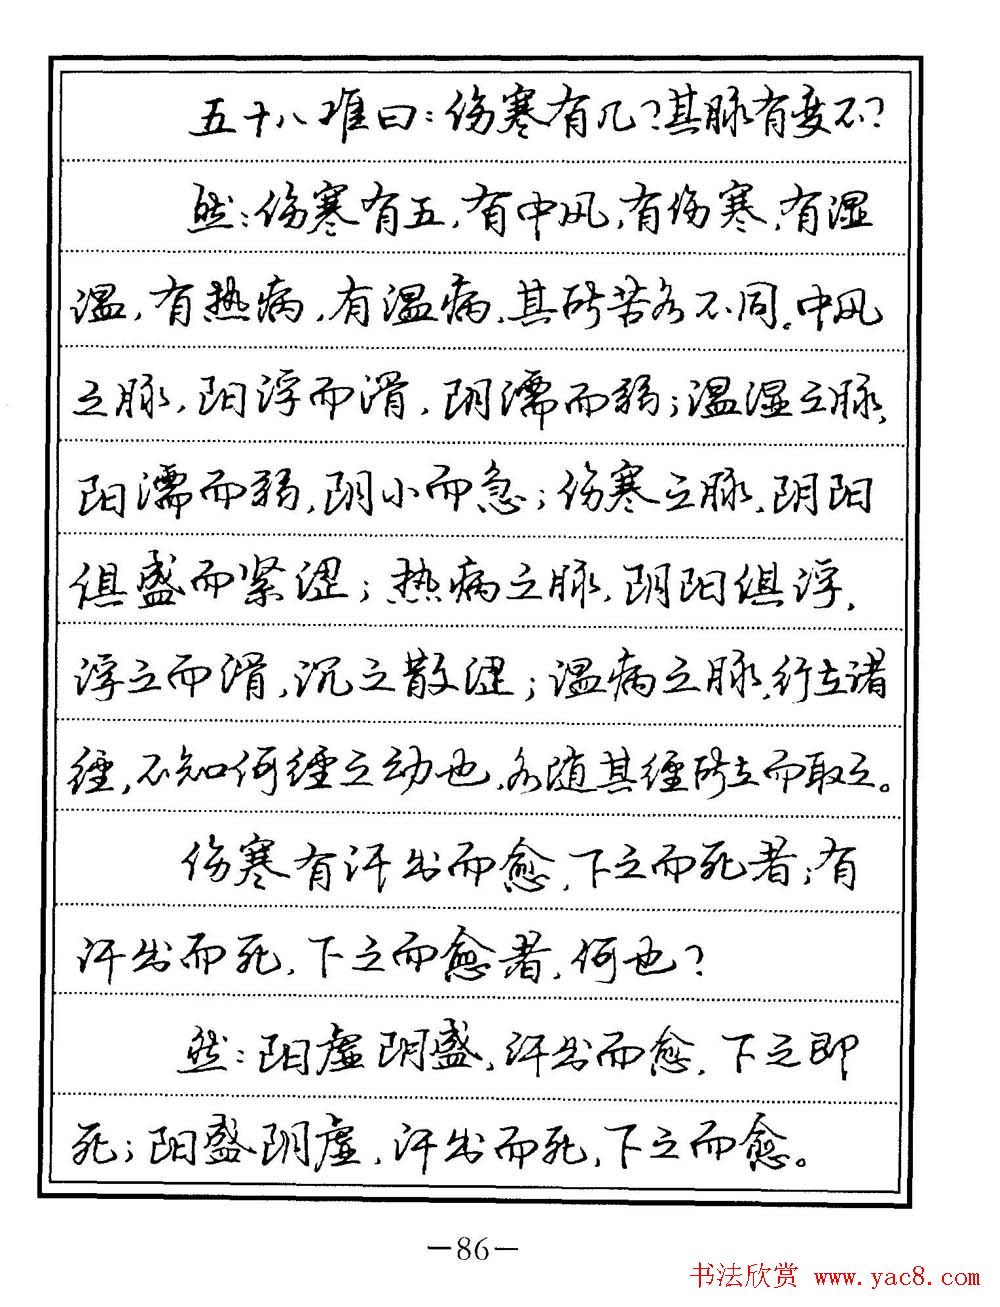 五十八难曰：伤寒有几？其脉有变不？
然：伤寒有五，有中风，有伤寒，有湿
温，有热病，有温病，其所苦各不同。中风
之脉，阳浮而滑，阴濡而弱；温湿之脉，
阳濡而弱，阴小而急；伤寒之脉，阴阳
俱盛而紧涩；热病之脉，阴阳俱浮，
浮之而滑，沉之散涩；温病之脉，行在诸
经，不知何经之动也，各随其经所在而取之。
伤寒有汗出而愈，下之而死者；有
汗出而死，下之而愈者，何也？
然：阳虚阴盛，汗出而愈，下之即
死；阳盛阴虚，汗出而死，下之而愈。
—86—
书法欣赏 www.yac8.com